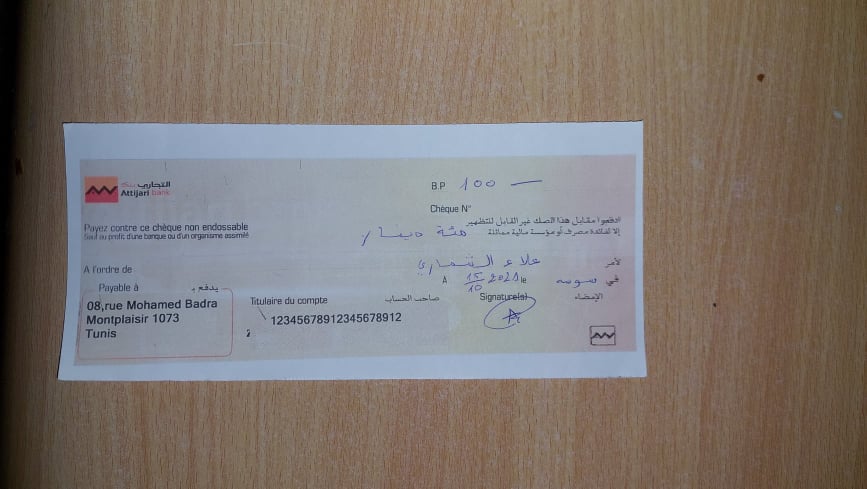 التجاري بنك
Attijari bank
B.P 100
Chèque N°
Payez contre ce chèque non endossable
Sauf au profit d'une banque ou d'un organisme assimilé
ادفعوا مقابل هذا الصك غير القابل للتظهير
إلا لفائدة مصرف أو مؤسسة مالية مماثلة
مئة دينار
A l'ordre de
علاء الشماري
لأمر
A 15/10 2021 le
سوسه في
Payable à يدفع بـ
08,rue Mohamed Badra
Montplaisir 1073
Tunis
Titulaire du compte صاحب الحساب
12345678912345678912
Signature(s) الإمضاء